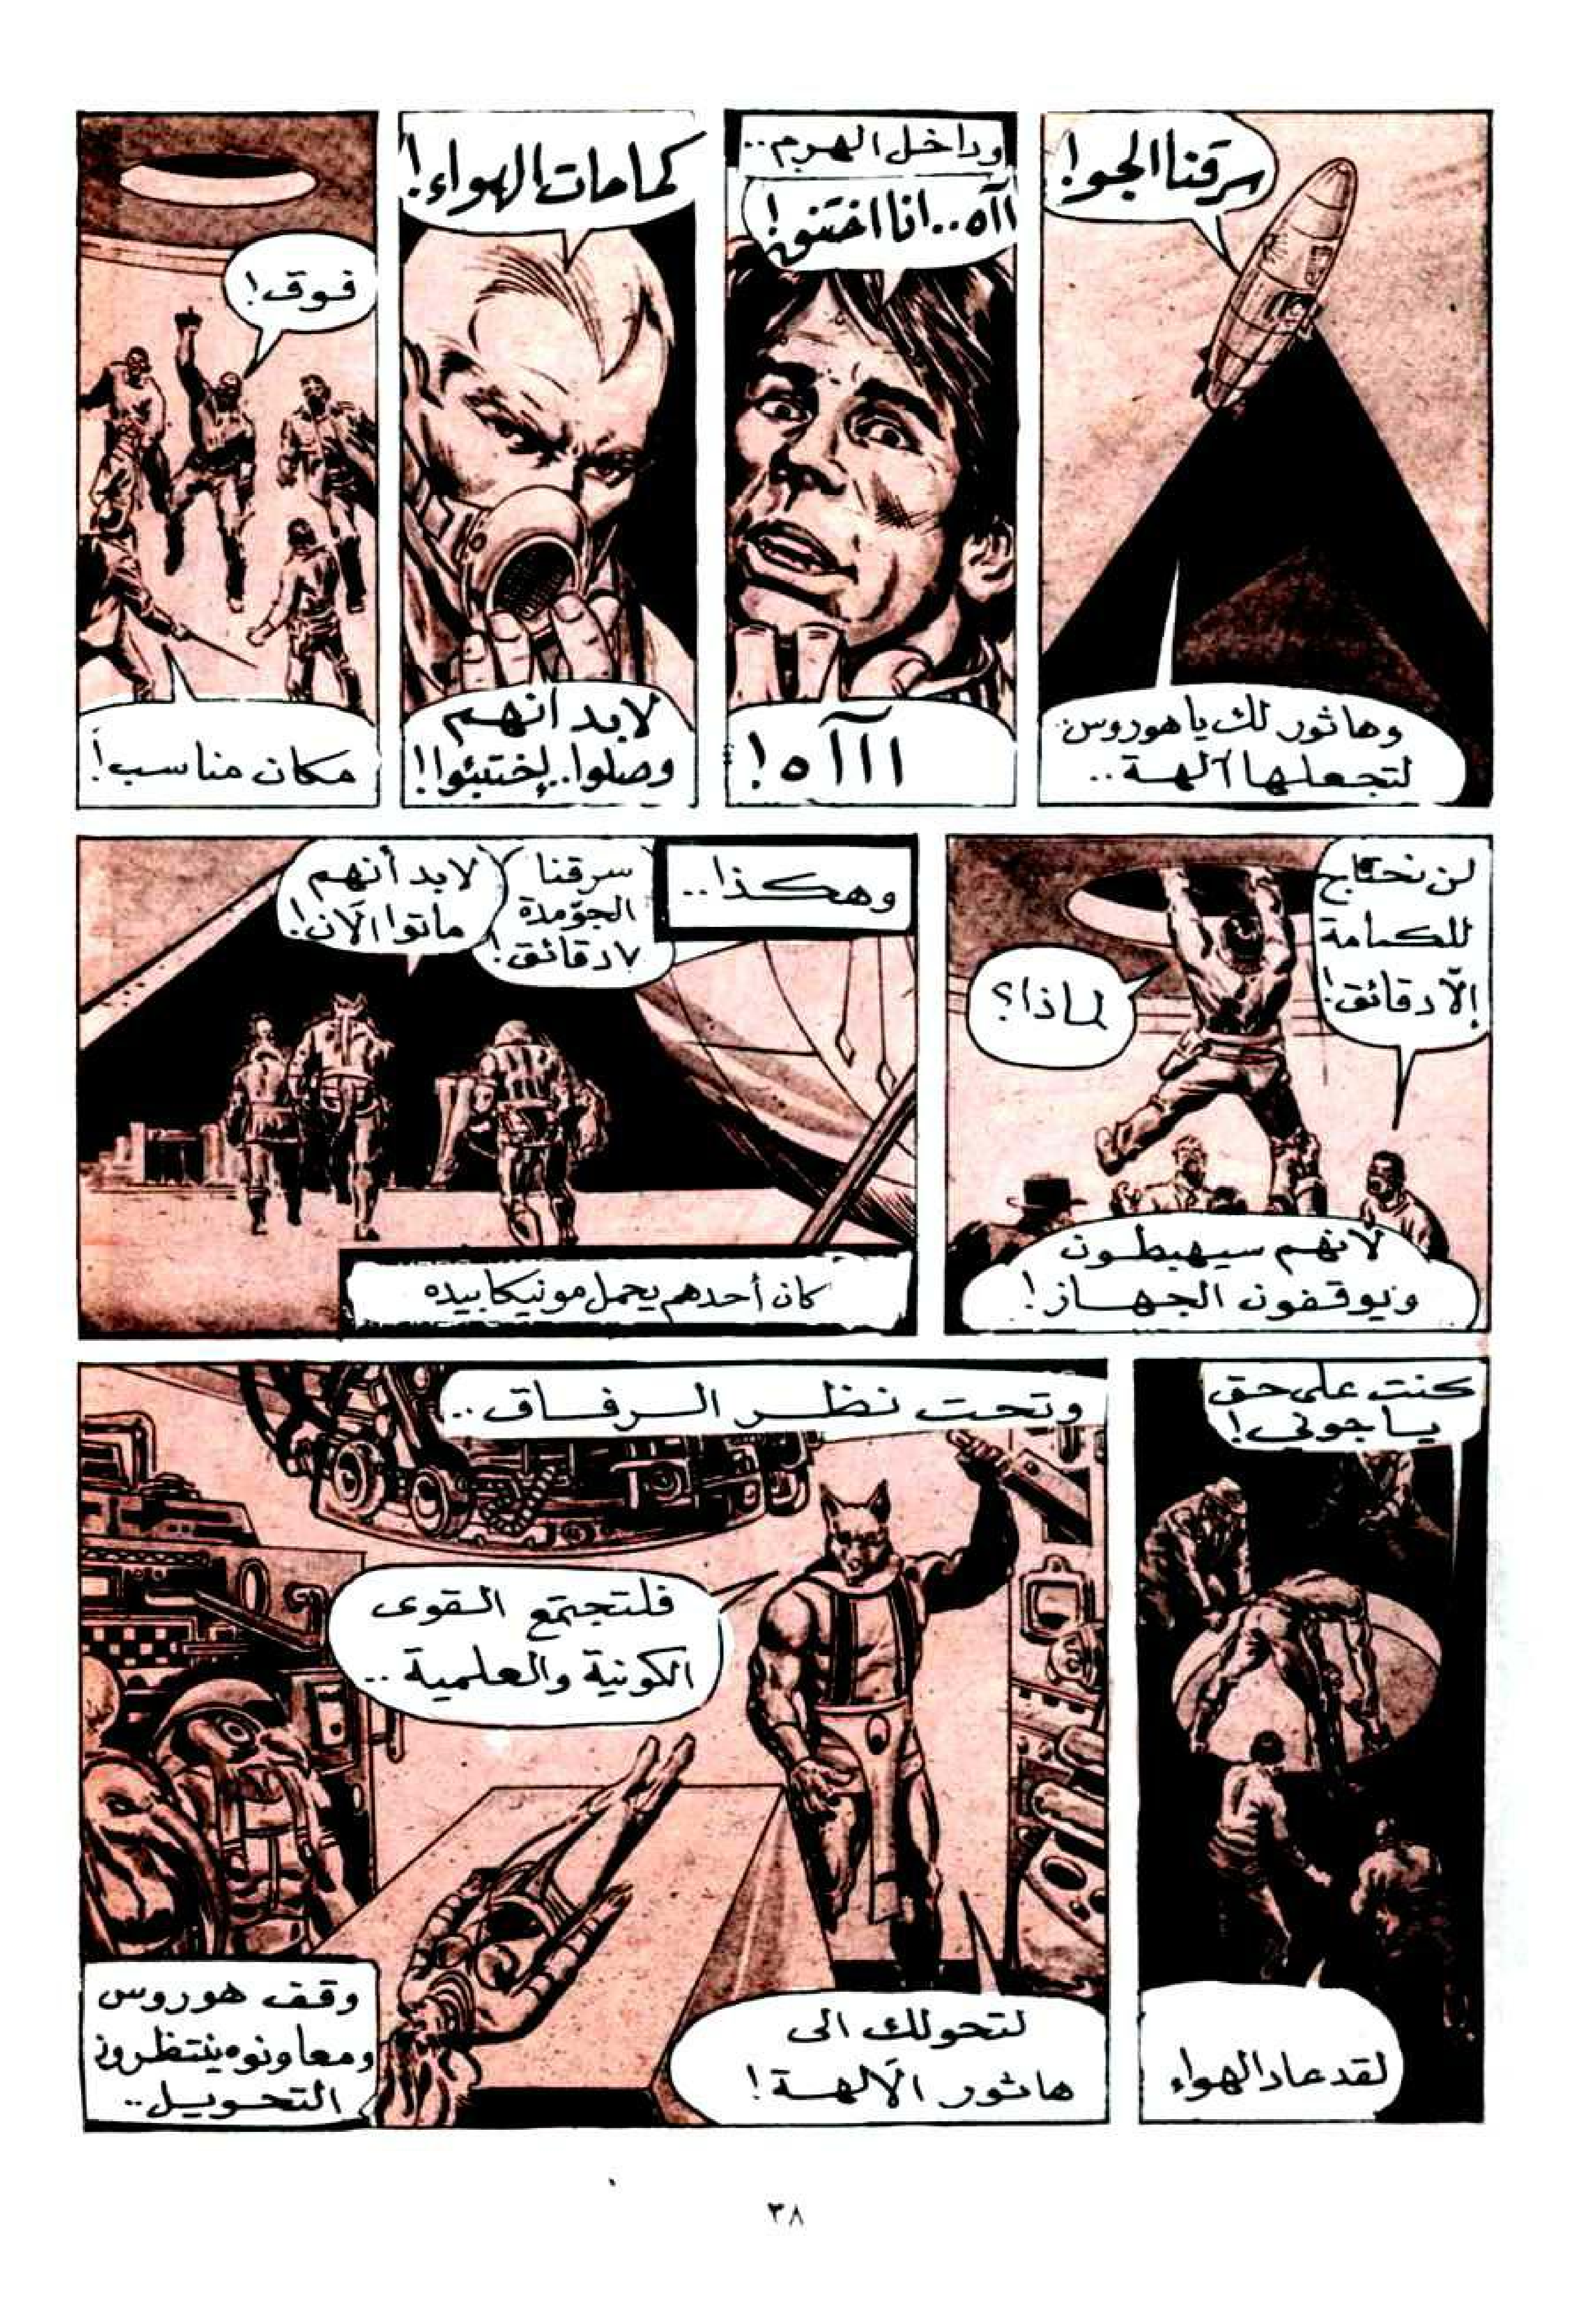 سرقنا الجو!
وهاثور لك يا هوروس
لتجعلها آلهة..
وداخل الهرم..
اآه..انا اختنق!
اآآه!
كمامات الهواء!
لابد انهم
وصلوا..إختبئوا!
فوق!
مكان مناسب!
لن نحتاج
للكمامة
إلاّ دقائق!
لماذا؟
لانهم سيهبطون
ويوقفون الجهاز!
وهكذا..
سرقنا
الجوّ مدة
٧ دقائق!
لابد أنهم
ماتوا الآن!
كان أحدهم يحمل مونيكا بيده
كنت على حق
يا جوني!
لقد عاد الهواء
وتحت نظر الرفاق..
فلتجتمع القوى
الكونية والعلمية..
لتحولك الى
هاثور الآلهة!
وقف هوروس
ومعاونوه ينتظرون
التحويل..
٣٨